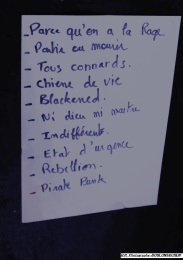 - Parce qu'on a la Rage
- Patrie ou mourir
- Tous connards.
- Chienne de vie
- Blackened.
- Ni dieu ni maitre
- Indifférents.
- Etat d'urgence
- Rebellion.
- Pirate Punk